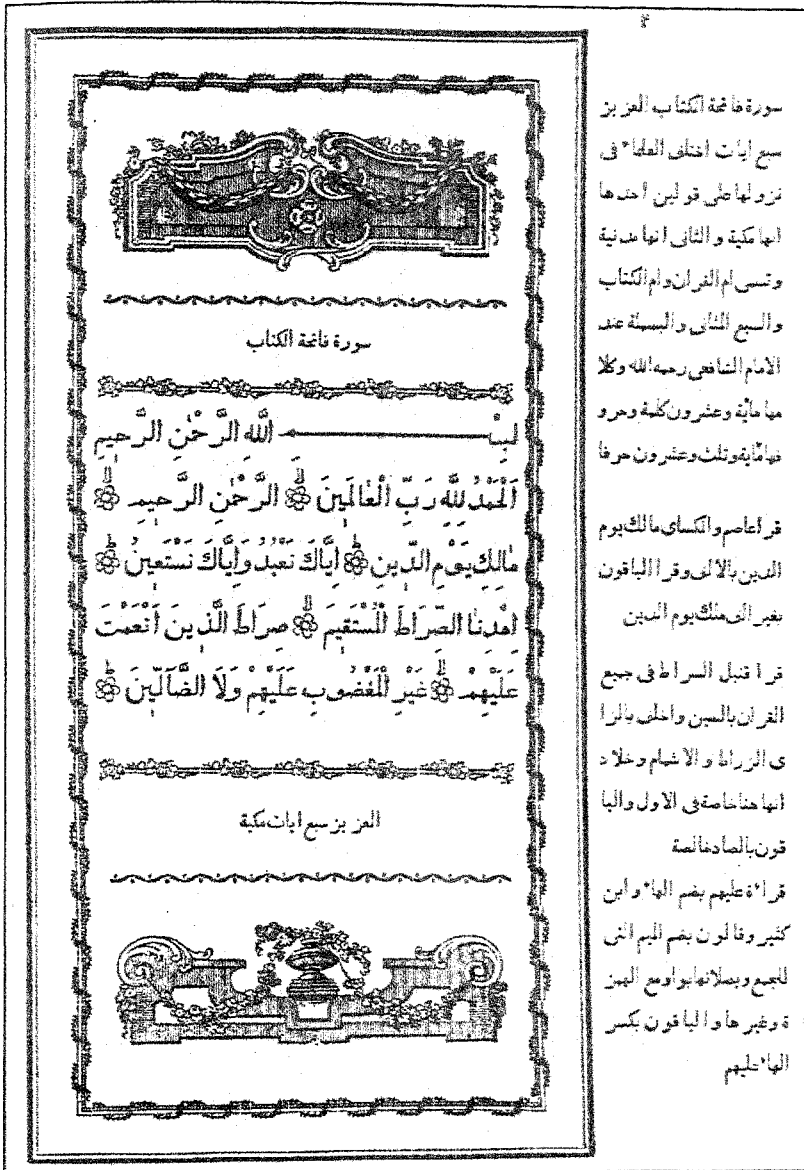 ٢
سورة فاتحة الكتاب
بسم الله الرَّحْمٰنِ الرَّحٖيمِ
اَلْحَمْدُ لِلّٰهِ رَبِّ الْعَالَمٖينَ الرَّحْمٰنِ الرَّحٖيمِ
مَالِكِ يَوْمِ الدّٖينِ اِيَّاكَ نَعْبُدُ وَاِيَّاكَ نَسْتَعٖينُ
اِهْدِنَا الصِّرَاطَ الْمُسْتَقٖيمَ صِرَاطَ الَّذٖينَ اَنْعَمْتَ
عَلَيْهِمْ غَيْرِ الْمَغْضُوبِ عَلَيْهِمْ وَلَا الضَّالّٖينَ
العزيز سبع ايات مكية
سورة فاتحة الكتاب العزيز
سبع ايات اختلف العلماء فى
نزولها على قولين احدها
انها مكية والثانى انها مدنية
وتسمى ام القران وام الكتاب
والسبع المثانى والبسملة عند
الامام الشافعى رحمه الله وكلا
مها ماية وعشرون كلمة وحرو
فها ماية وثلث وعشرون حرفا
قرا عاصم والكساى مالك يوم
الدين بالالف وقرا الباقون
بغير الف ملك يوم الدين
قرا قنبل السراط فى جميع
القران بالسين واخلف بالزا
ى الزراط والاشمام وخلاد
انها هنا خاصة فى الاول والبا
قون بالصاد خالصة
قراءة عليهم بضم الهاء وابن
كثير وقالون بضم الميم التى
للجمع وبصلانها بواو مع الهمز
ة وغيرها والباقون بكسر
الهاء عليهم